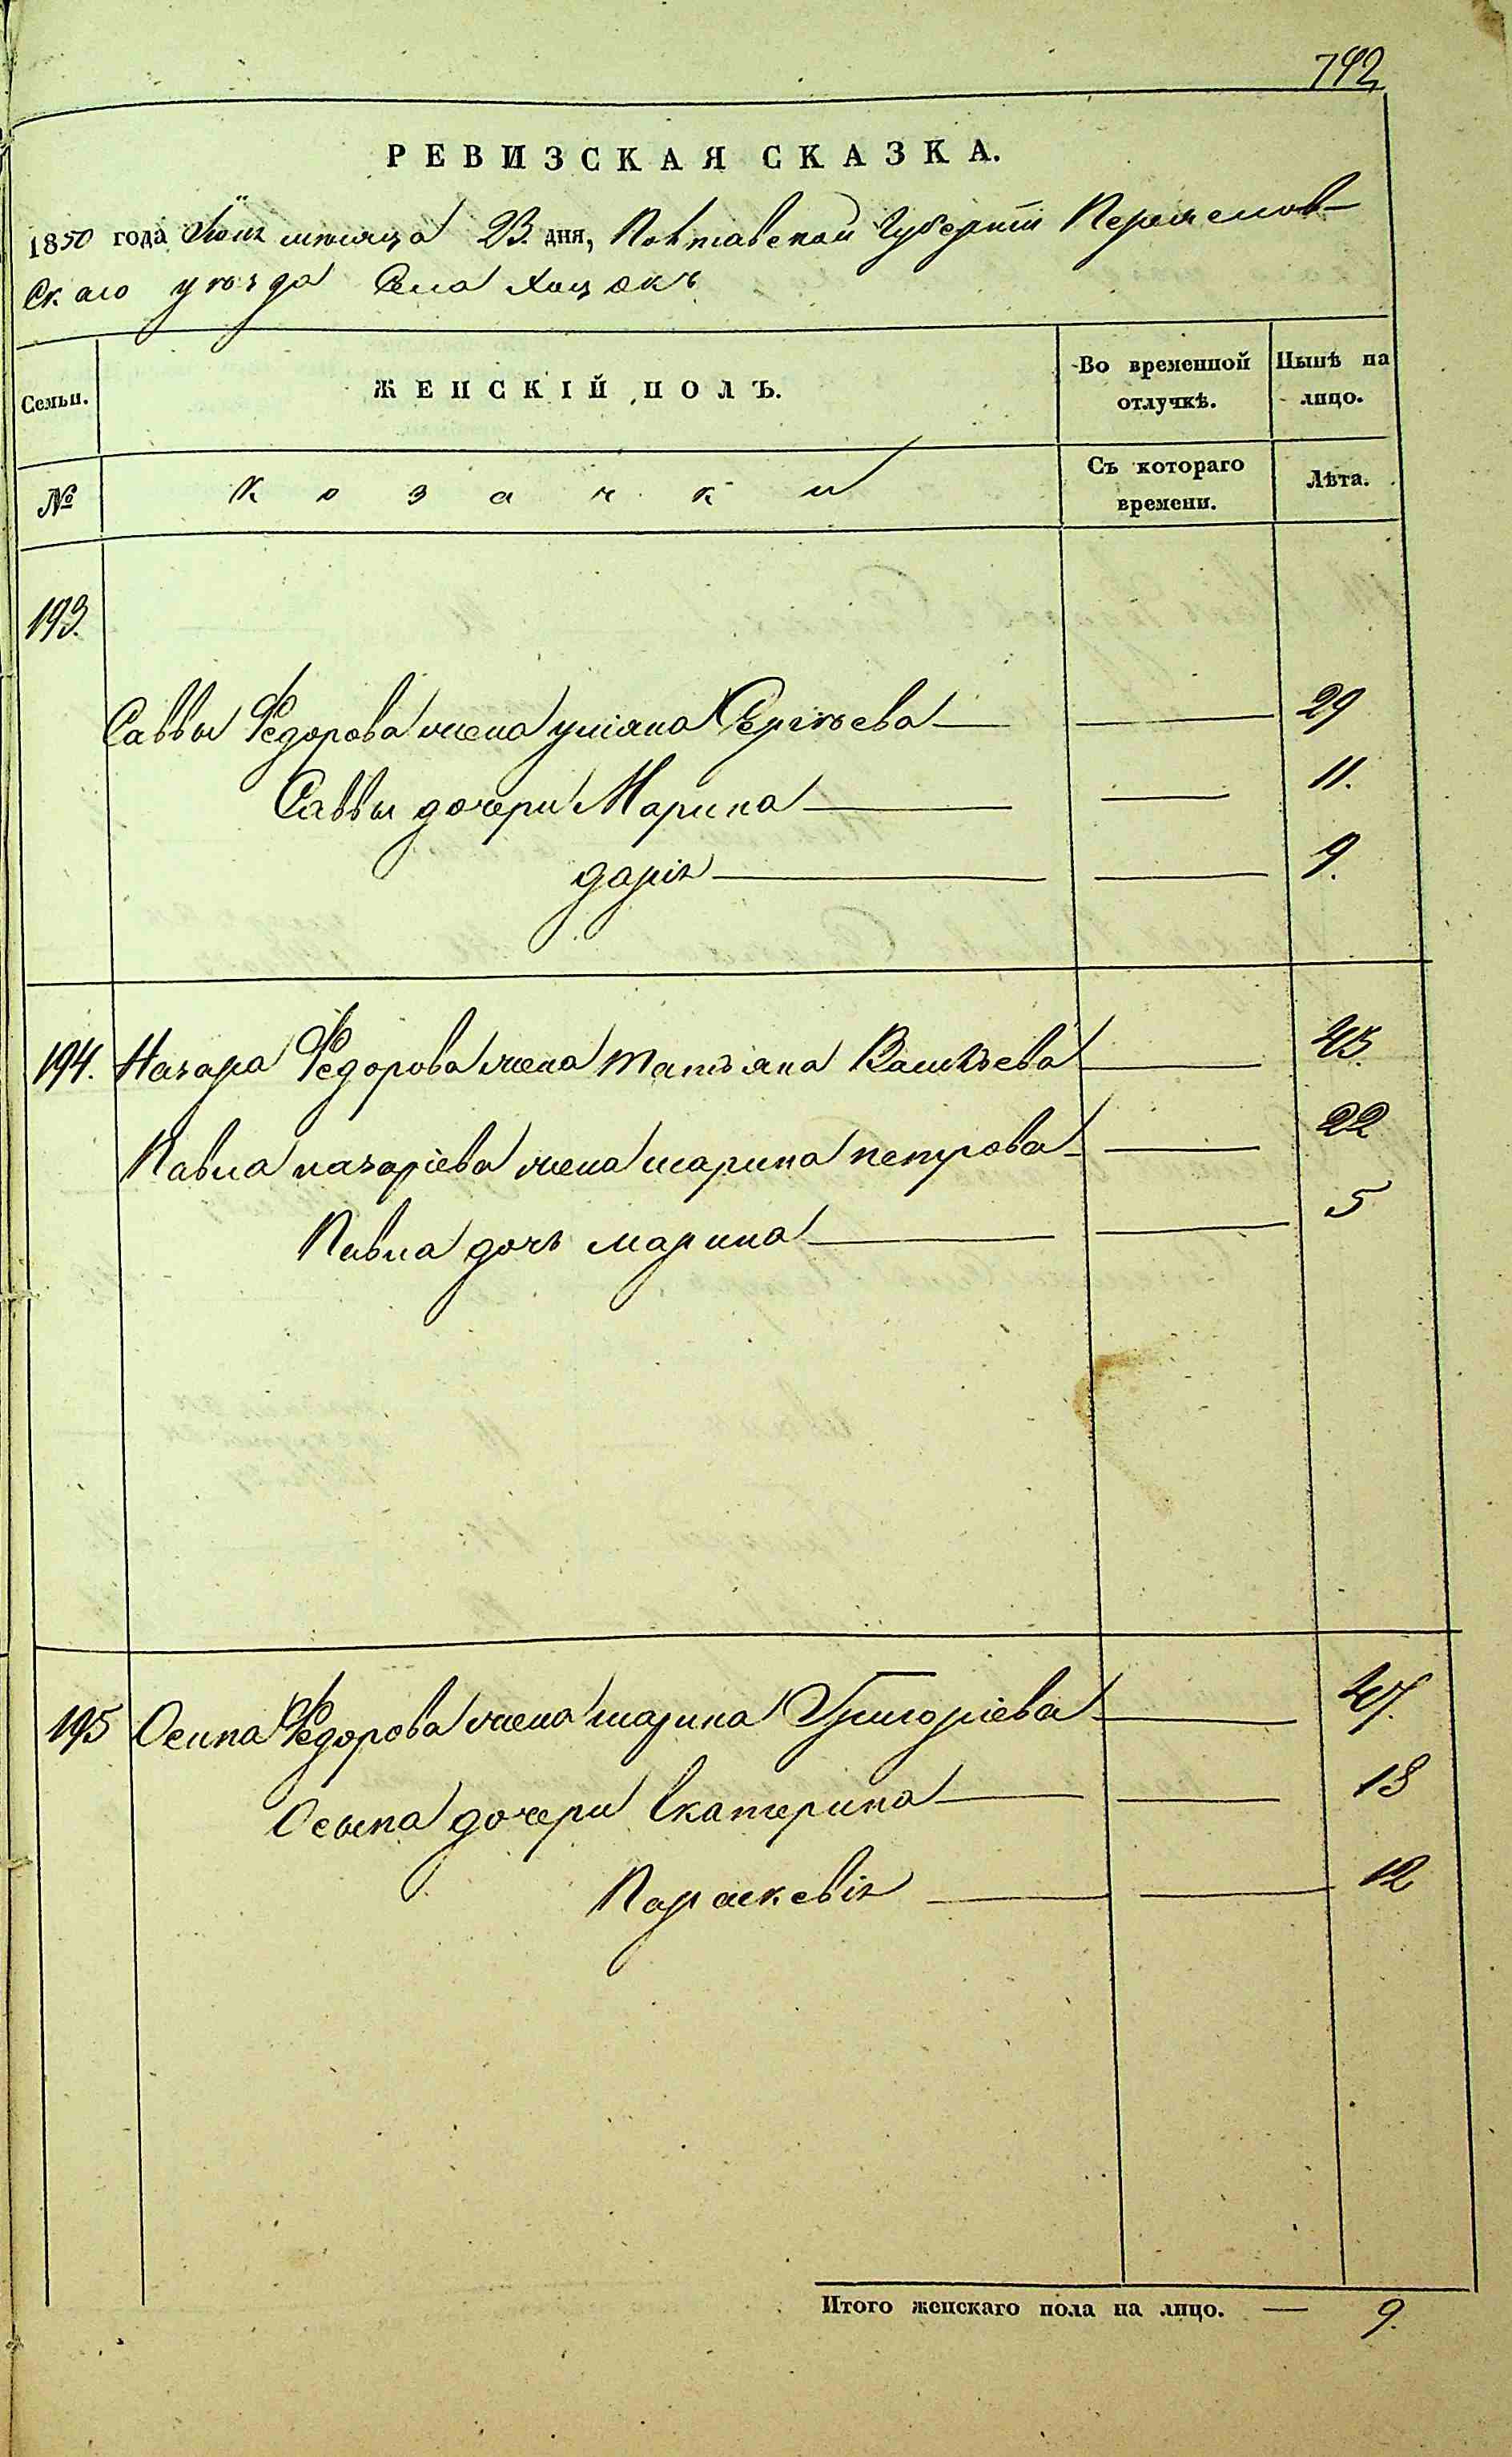 792
РЕВИЗСКАЯ СКАЗКА.
1850 года мѣсяца 23. дня, Полтавской Губерніи Переяслов-
скаго уѣзда Села Хоцокъ
Семьи.
ЖЕНСКІЙ ПОЛЪ.
Во временной отлучкѣ.
Нынѣ на лицо.
№
Козачки
Съ котораго времени.
Лѣта.
193.
Саввы Федорова жена уліяна Сергѣева — — 29
Саввы дочери Марина — — 11.
дарія — — 9.
194. Назара Федорова жена татьяна — 45.
Павла назаріева жена марина петрова — — 22
Павла дочь марина — — 5
195 Осипа Федорова жена марина Григоріева — 47.
Осипа дочери Екатерина — — 18
Параскевія — — 12
Итого женскаго пола на лицо. — 9.